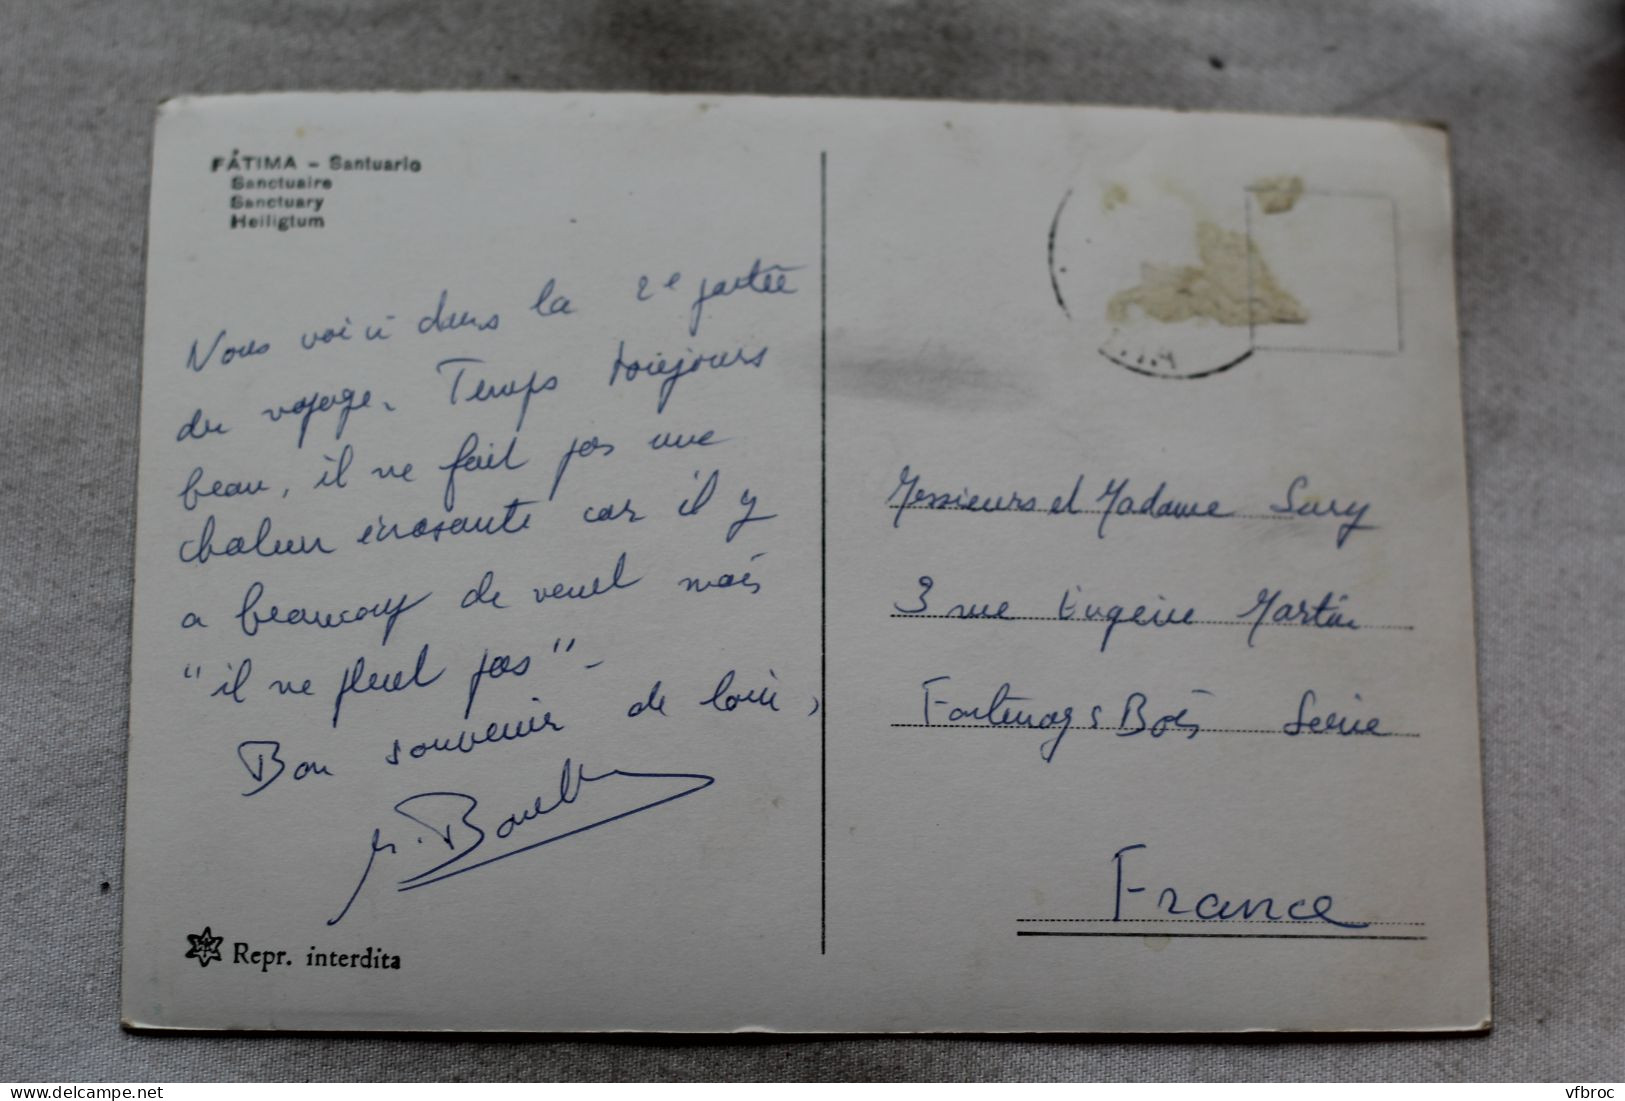 FÁTIMA - Santuario
Sanctuaire
Sanctuary
Heiligtum
Nous voici dans la 2e partie
du voyage. Temps toujours
beau, il ne fait pas une
chaleur écrasante car il y
a beaucoup de vent mais
"il ne pleut pas" -
Bon souvenir de loin,
Repr. interdita
Messieurs et Madame Sury
3 rue Eugène Martin
Fontenay s Bois Seine
France
delcampe.net
vfbroc